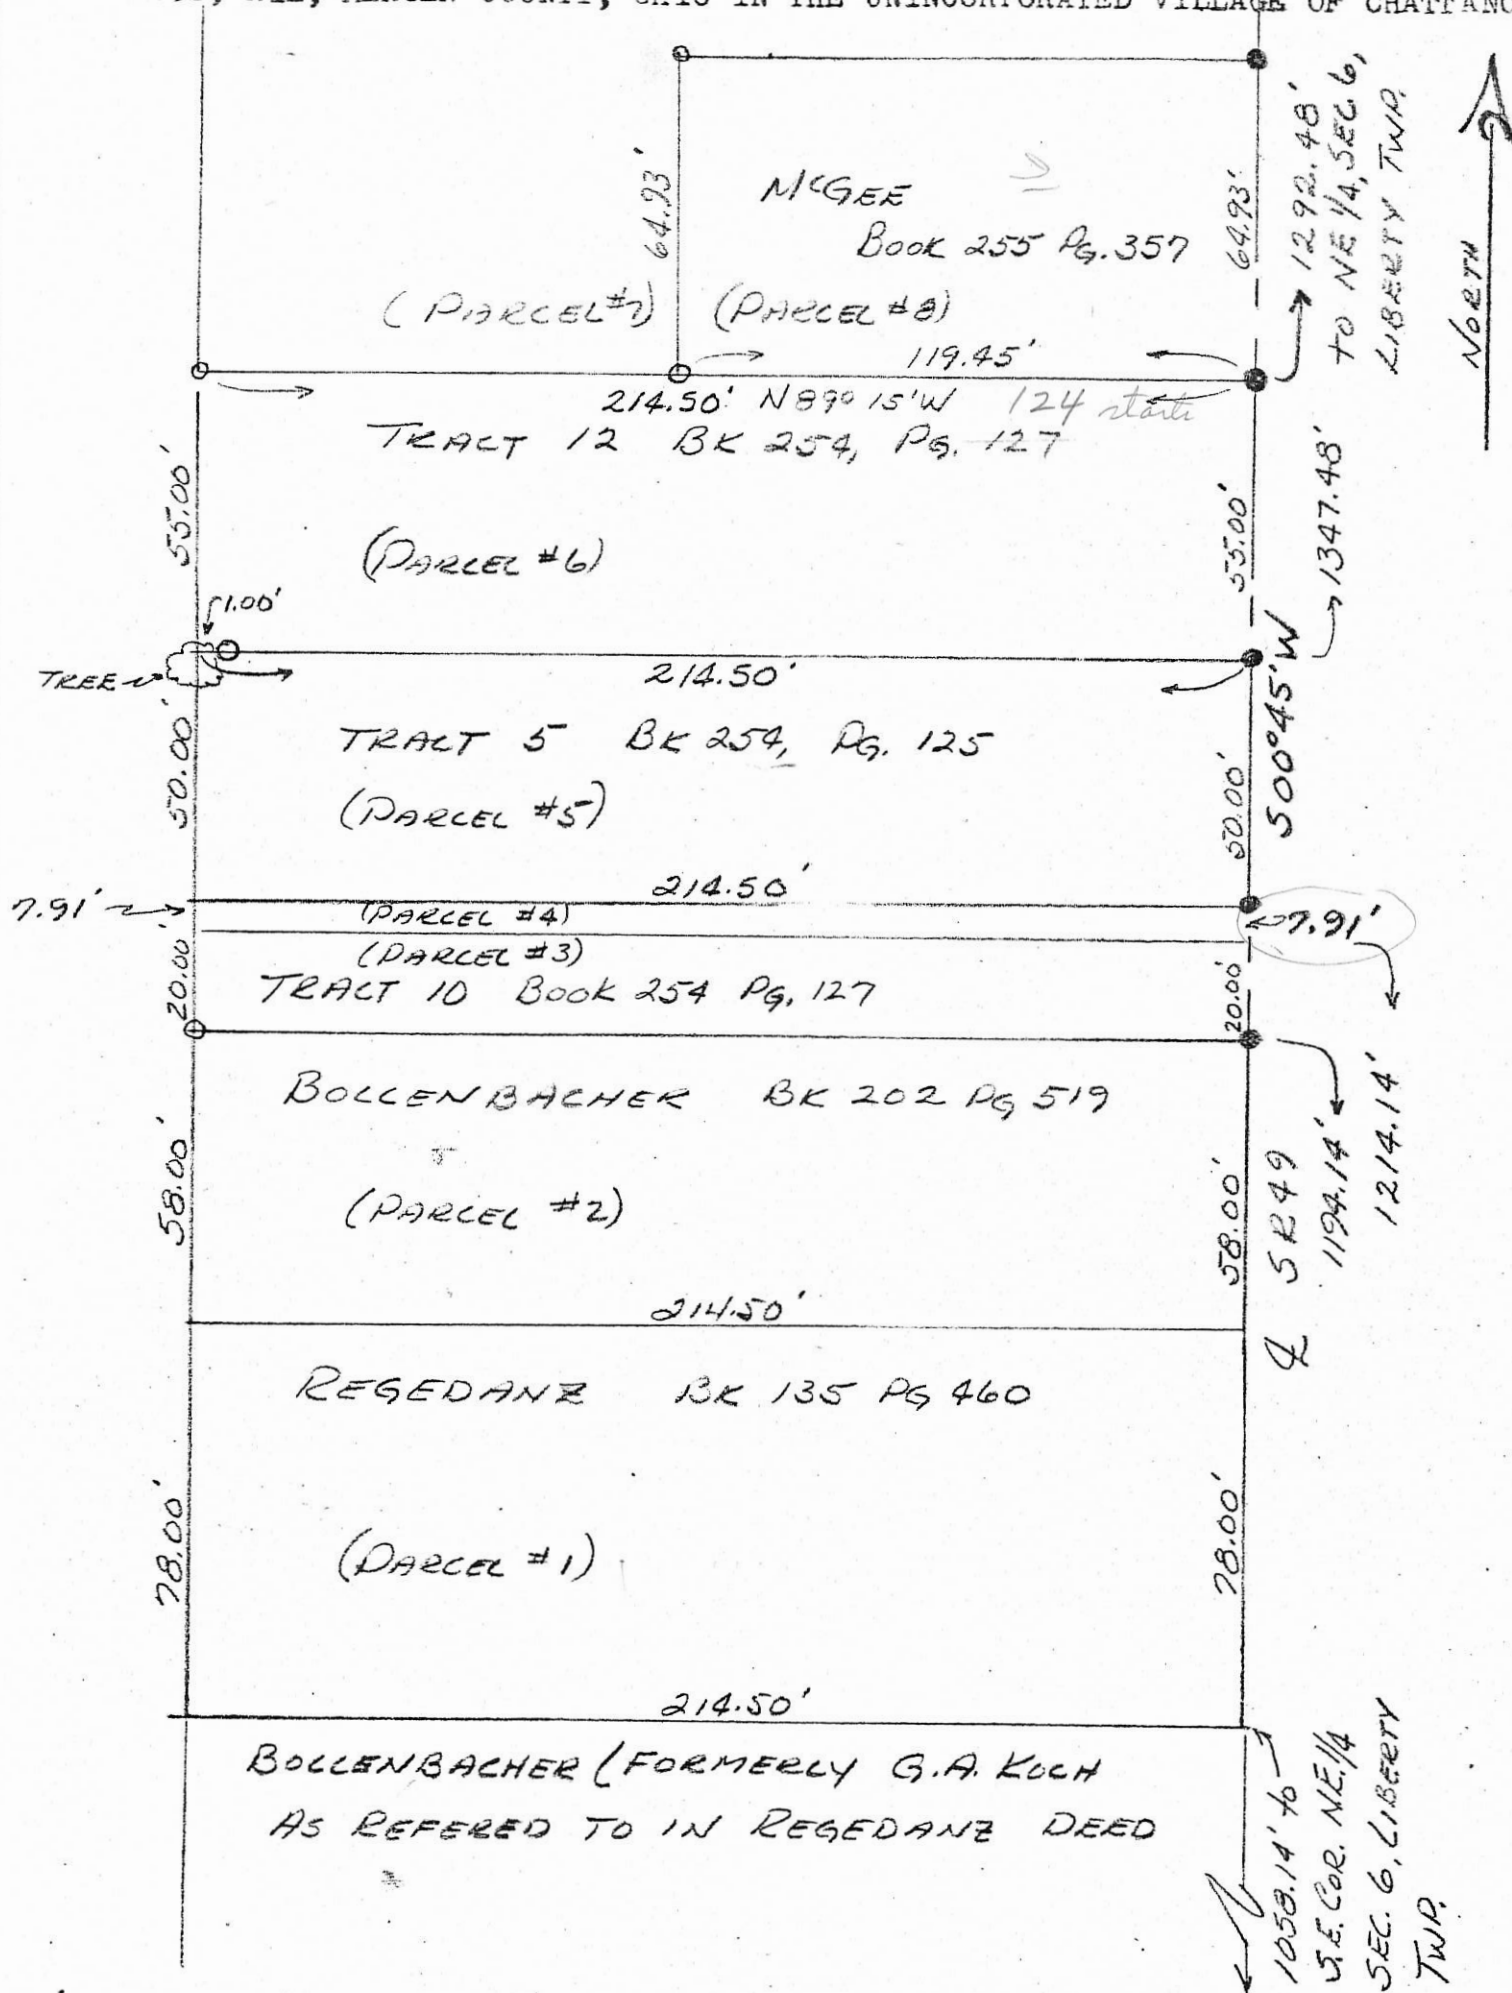 COUNTY, OHIO IN THE UNINCORPORATED VILLAGE OF
1292.48'
to NE 1/4, SEC 6,
LIBERTY TWP.
NORTH
64.93'
McGEE
Book 255 PG. 357
64.93'
(PARCEL #7)
(PARCEL #8)
119.45'
214.50' N89° 15'W
124 starts
TRACT 12 BK 254, PG. 127
55.00'
(PARCEL #6)
55.00'
1347.48'
1.00'
TREE
214.50'
S00°45'W
TRACT 5 BK 254, PG. 125
50.00'
(PARCEL #5)
50.00'
214.50'
7.91'
(PARCEL #4)
7.91'
(PARCEL #3)
20.00'
TRACT 10 BOOK 254 PG. 127
20.00'
BOLLENBACHER BK 202 PG 519
58.00'
(PARCEL #2)
58.00'
SR49
1194.14'
1214.14'
214.50'
REGEDANZ BK 135 PG 460
78.00'
(PARCEL #1)
78.00'
214.50'
BOLLENBACHER (FORMERLY G.A. KOCH
AS REFERED TO IN REGEDANZ DEED
1058.14' to
S.E. COR. NE.1/4
SEC. 6, LIBERTY
TWP.